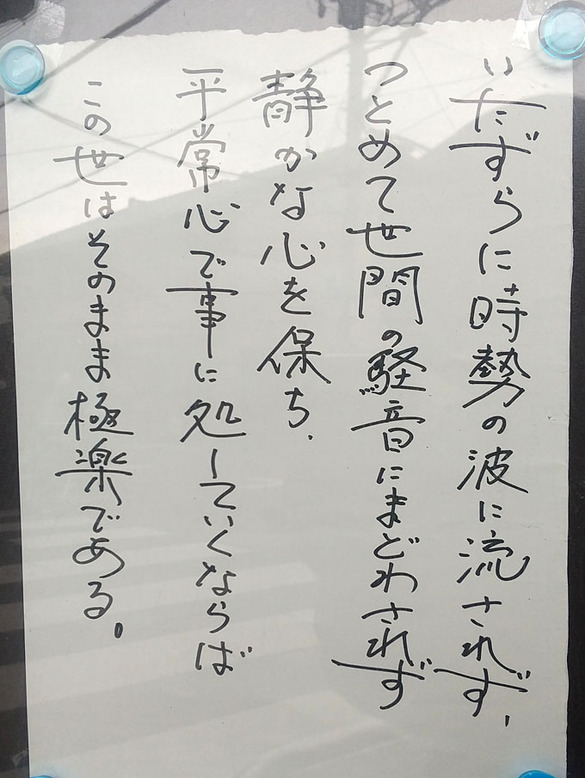 いたずらに時勢の波に流されず、
つとめて世間の騒音にまどわされず
静かな心を保ち、
平常心で事に処していくならば
この世はそのまま極楽である。